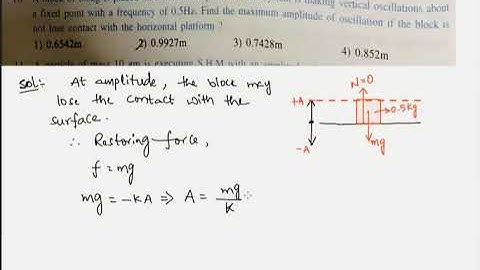 is making vertical oscillations about
a fixed point with a frequency of 0.5Hz. Find the maximum amplitude of oscillation if the block is
not lose contact with the horizontal platform ?
1) 0.6542m 2) 0.9927m 3) 0.7428m 4) 0.852m
is executing S.H.M
Sol:- At amplitude, the block may
lose the contact with the
surface.
∴ Restoring force,
f = mg
mg = -KA ⇒ A = mg/K
N=0
+A
0.5kg
-A
mg